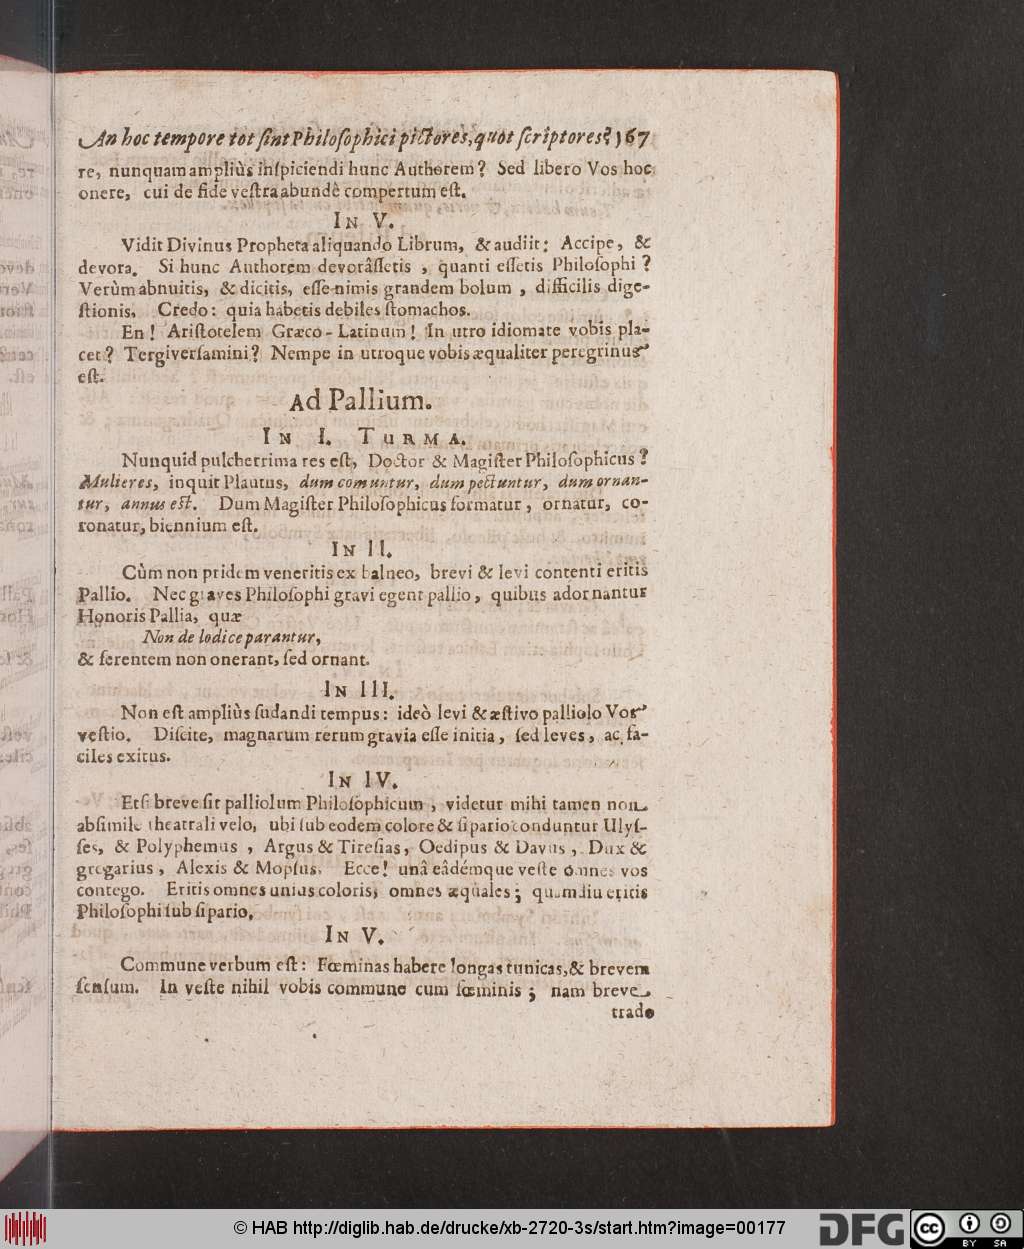 An hoc tempore tot ſint Philoſophici pictores, quot ſcriptores? 167
re, nunquam ampliùs inſpiciendi hunc Authorem? Sed libero Vos hoc
onere, cui de fide veſtra abundè compertum eſt.
IN V.
Vidit Divinus Propheta aliquando Librum, & audiit: Accipe, &
devora. Si hunc Authorem devorâſſetis, quanti eſſetis Philoſophi?
Verùm abnuitis, & dicitis, eſſe nimis grandem bolum, difficilis dige-
ſtionis. Credo: quia habetis debiles ſtomachos.
En! Ariſtotelem Græco-Latinum! In utro idiomate vobis pla-
cet? Tergiverſamini? Nempe in utroque vobis æqualiter peregrinus
eſt.
Ad Pallium.
IN I. TURMA.
Nunquid pulcherrima res eſt, Doctor & Magiſter Philoſophicus?
Mulieres, inquit Plautus, dum comuntur, dum pectuntur, dum ornan-
tur, annus eſt. Dum Magiſter Philoſophicus formatur, ornatur, co-
ronatur, biennium eſt.
IN II.
Cùm non pridem veneritis ex balneo, brevi & levi contenti eritis
Pallio. Nec graves Philoſophi gravi egent pallio, quibus adornantur
Honoris Pallia, quæ
Non de lodice parantur,
& ferentem non onerant, ſed ornant.
IN III.
Non eſt ampliùs ſudandi tempus: ideò levi & æſtivo palliolo Vos
veſtio. Diſcite, magnarum rerum gravia eſſe initia, ſed leves, ac fa-
ciles exitus.
IN IV.
Etſi breve ſit palliolum Philoſophicum, videtur mihi tamen non
abſimile theatrali velo, ubi ſub eodem colore & ſipario conduntur Ulyſ-
ſes, & Polyphemus, Argus & Tireſias, Oedipus & Davus, Dux &
gregarius, Alexis & Mopſus. Ecce! unâ eâdémque veſte omnes vos
contego. Eritis omnes unius coloris, omnes æquales; quamdiu eritis
Philoſophi ſub ſipario.
IN V.
Commune verbum eſt: Fœminas habere longas tunicas, & brevem
ſenſum. In veſte nihil vobis commune cum fœminis; nam breve
trado
© HAB http://diglib.hab.de/drucke/xb-2720-3s/start.htm?image=00177
DFG
cc
BY SA